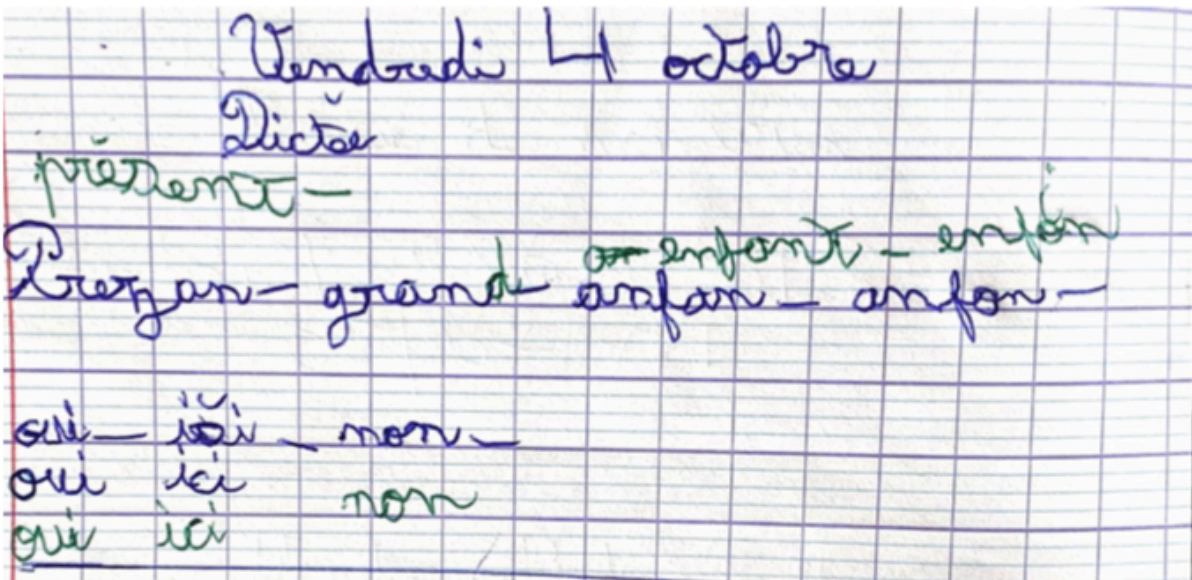 Vendredi 4 octobre
Dictée
présent -
enfant - enfin
Prezan - grand anfan - anfon -
oui - ici - non -
oui ici
non
oui ici